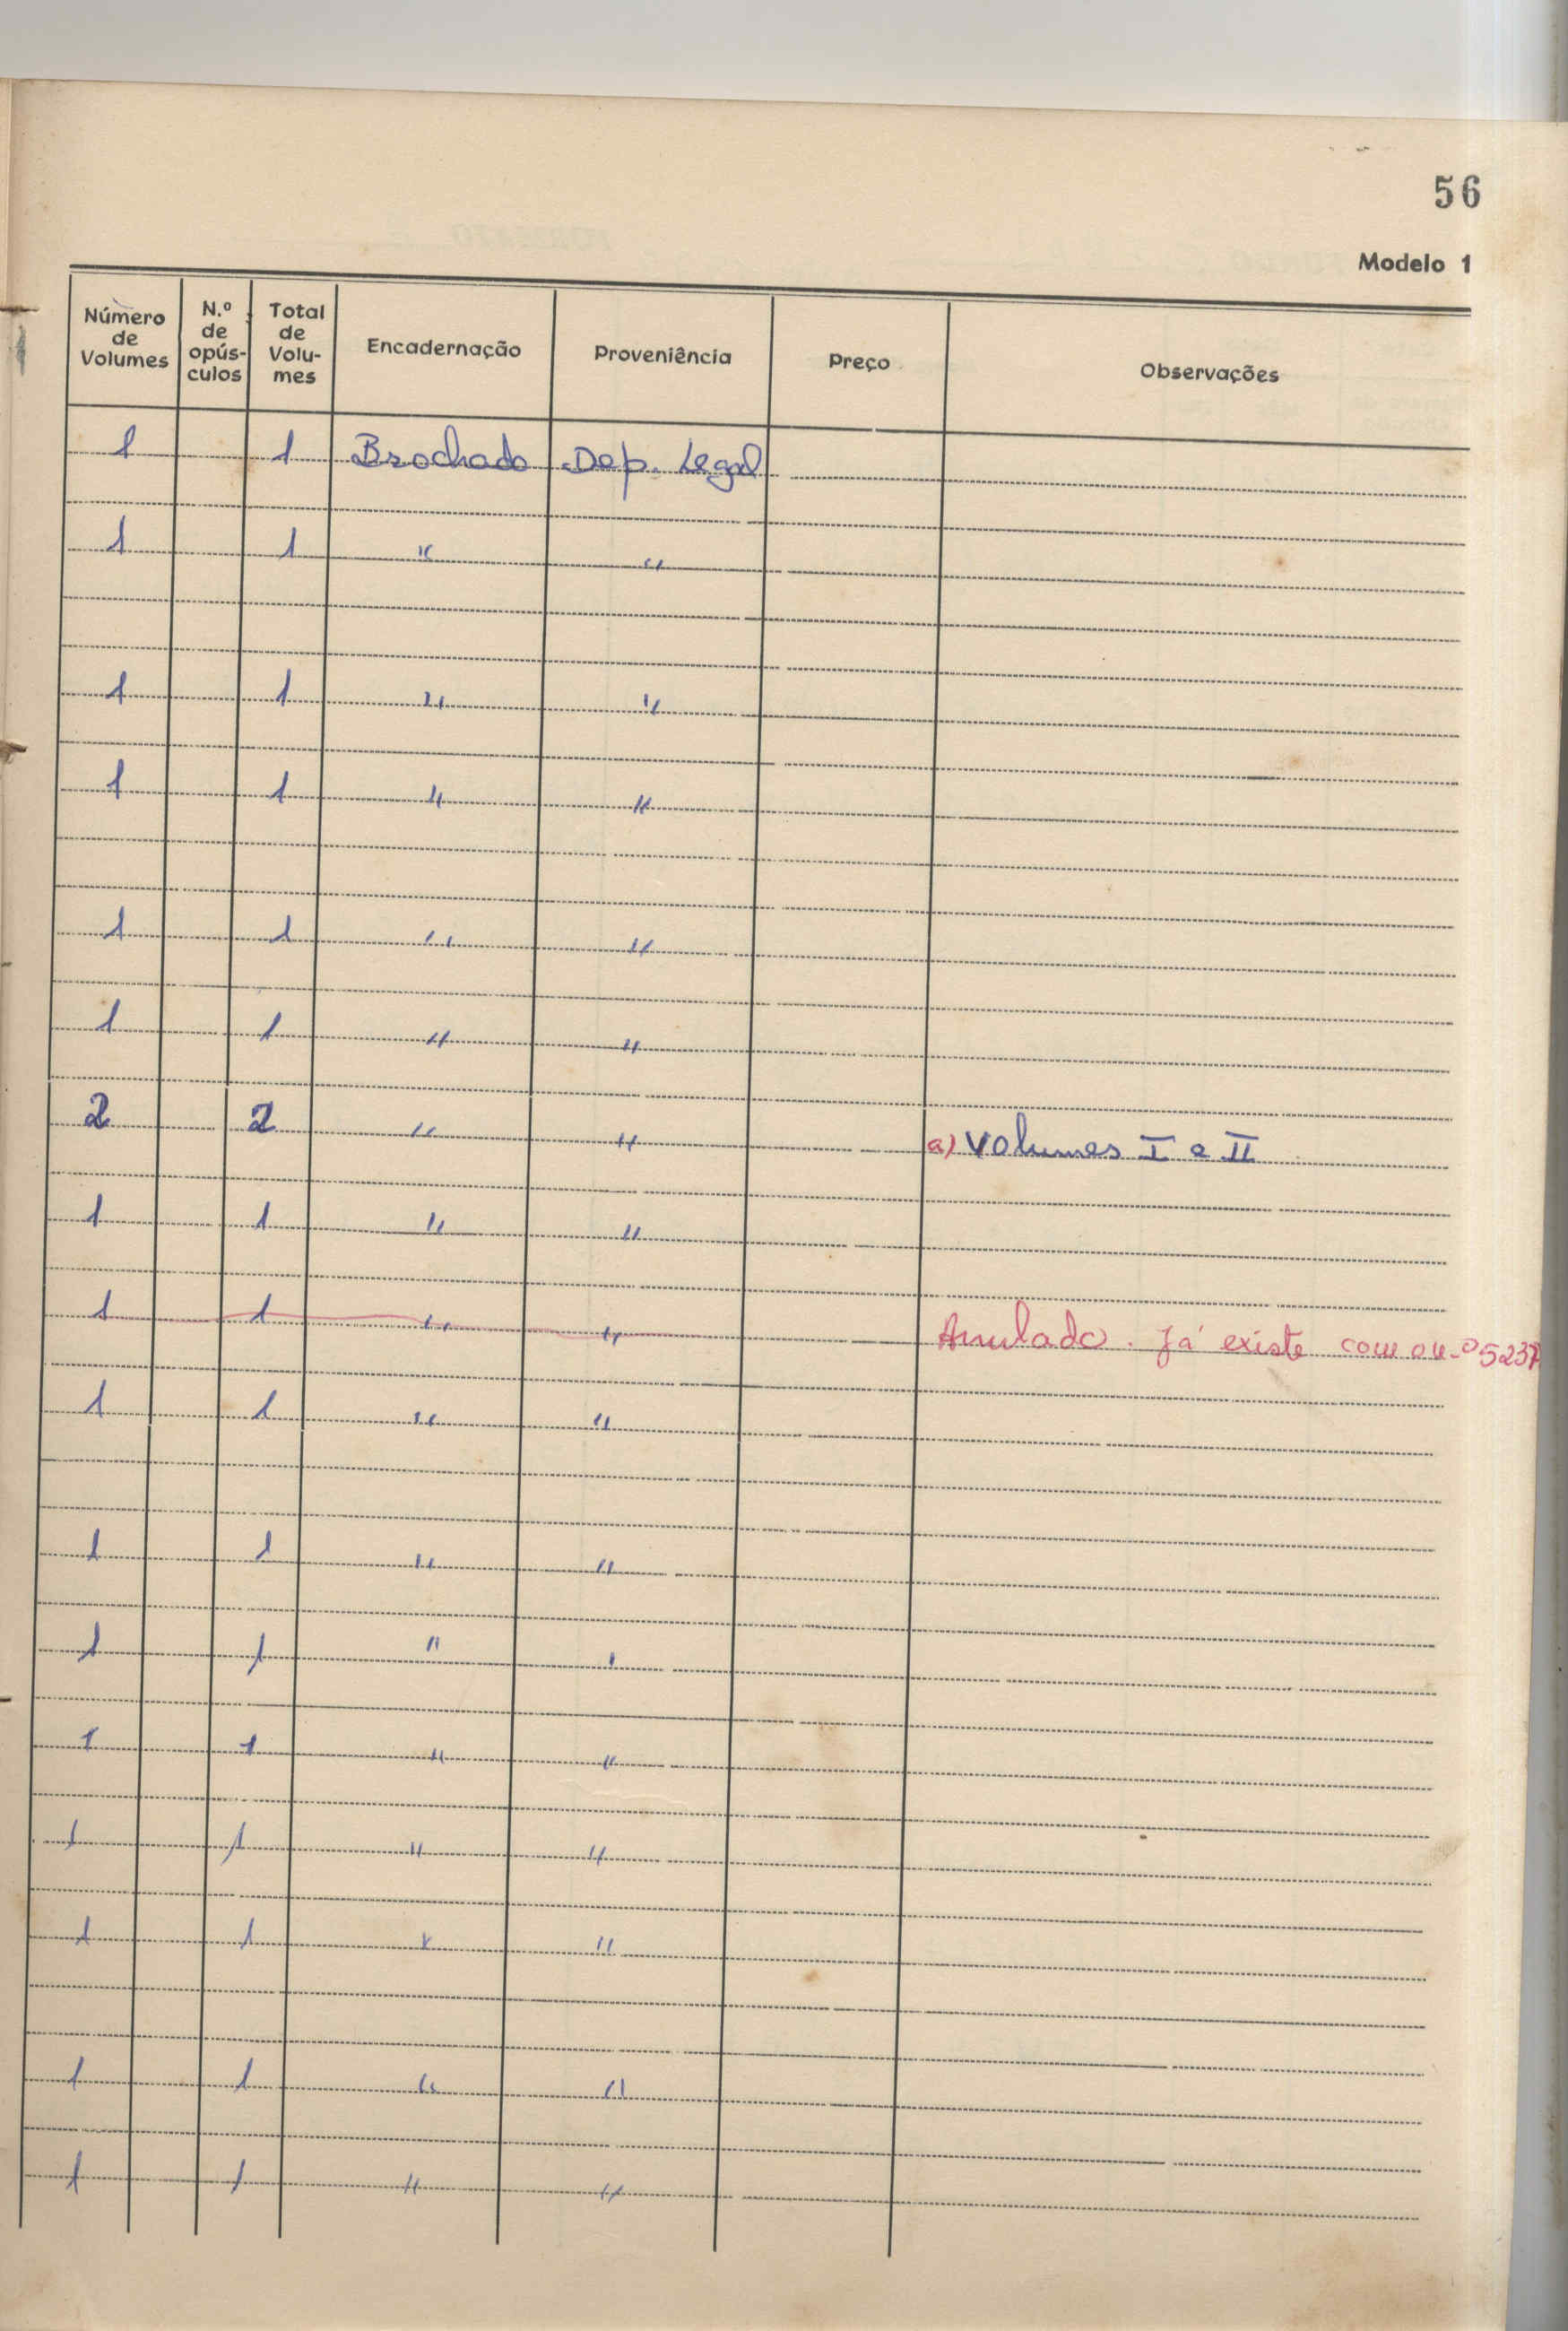 56
Modelo 1
Número de Volumes N.º de opús-culos Total de Volu-mes Encadernação Proveniência Preço Observações
1 1 Brochado Dep. Legal
1 1 " "
1 1 " "
1 1 " "
1 1 " "
1 1 " "
2 2 " " a) Volumes I e II
1 1 " "
1 1 " " Anulado. Já existe com o n.º 5237
1 1 " "
1 1 " "
1 1 " "
1 1 " "
1 1 " "
1 1 " "
1 1 " "
1 1 " "